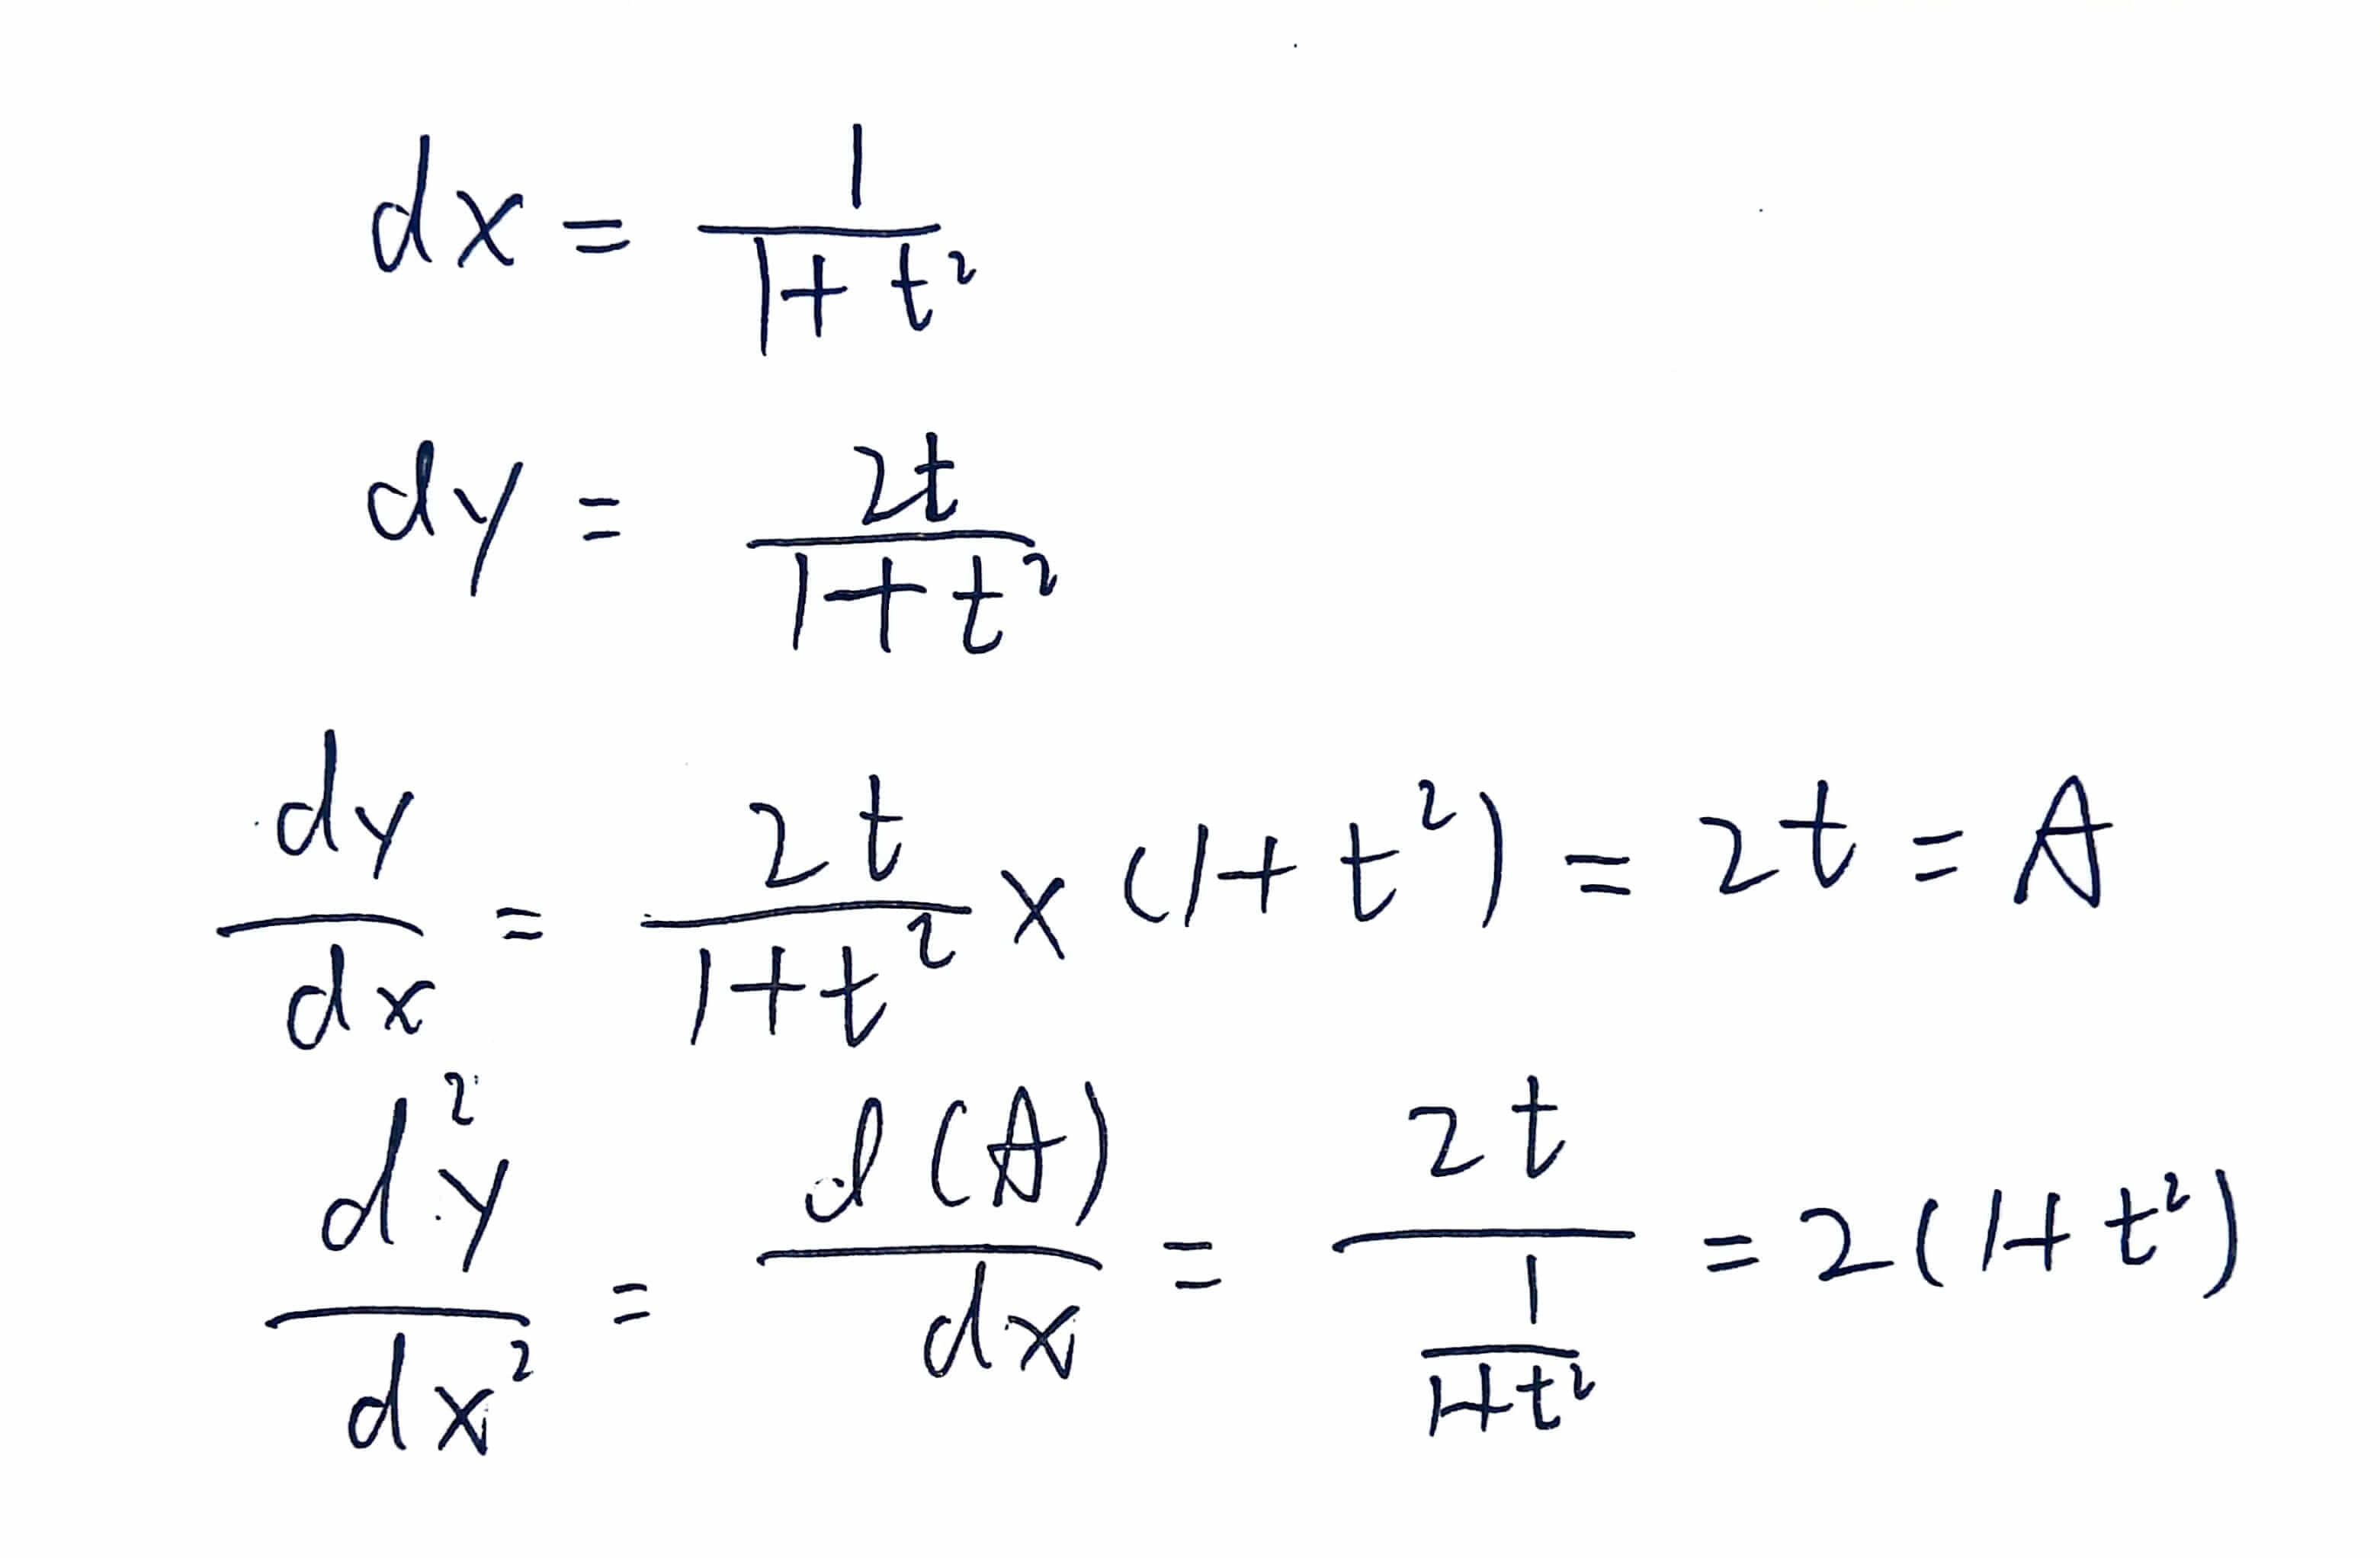 dx = 1/(1+t²)
dy = 2t/(1+t²)
dy/dx = 2t/(1+t²) × (1+t²) = 2t = A
d²y/dx² = d(A)/dx = 2t/(1/(1+t²)) = 2(1+t²)